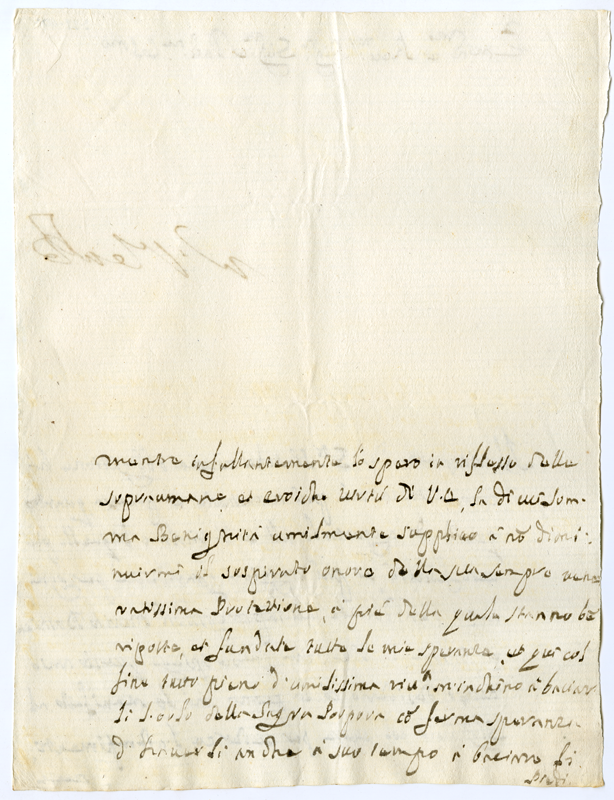 mentre infallantemente lo spero in riflesso delle
sopraumane, et eroiche virtù di V.E., la di cui som-
ma Benignità umilmente supplico à nō dimi-
nuirmi il sospirato onore della sua sempre vene
ratissima Protettione, à piè della quale stanno bē
riposte, et fundate tutte le mie speranze, et qui col
fine tutto pieno d'umilissima riu.ª m'inchino à baciar
li l'orlo della Sagra Porpora cō ferma speranza
d' hauerli anche à suo tempo à baciare li
Piedi